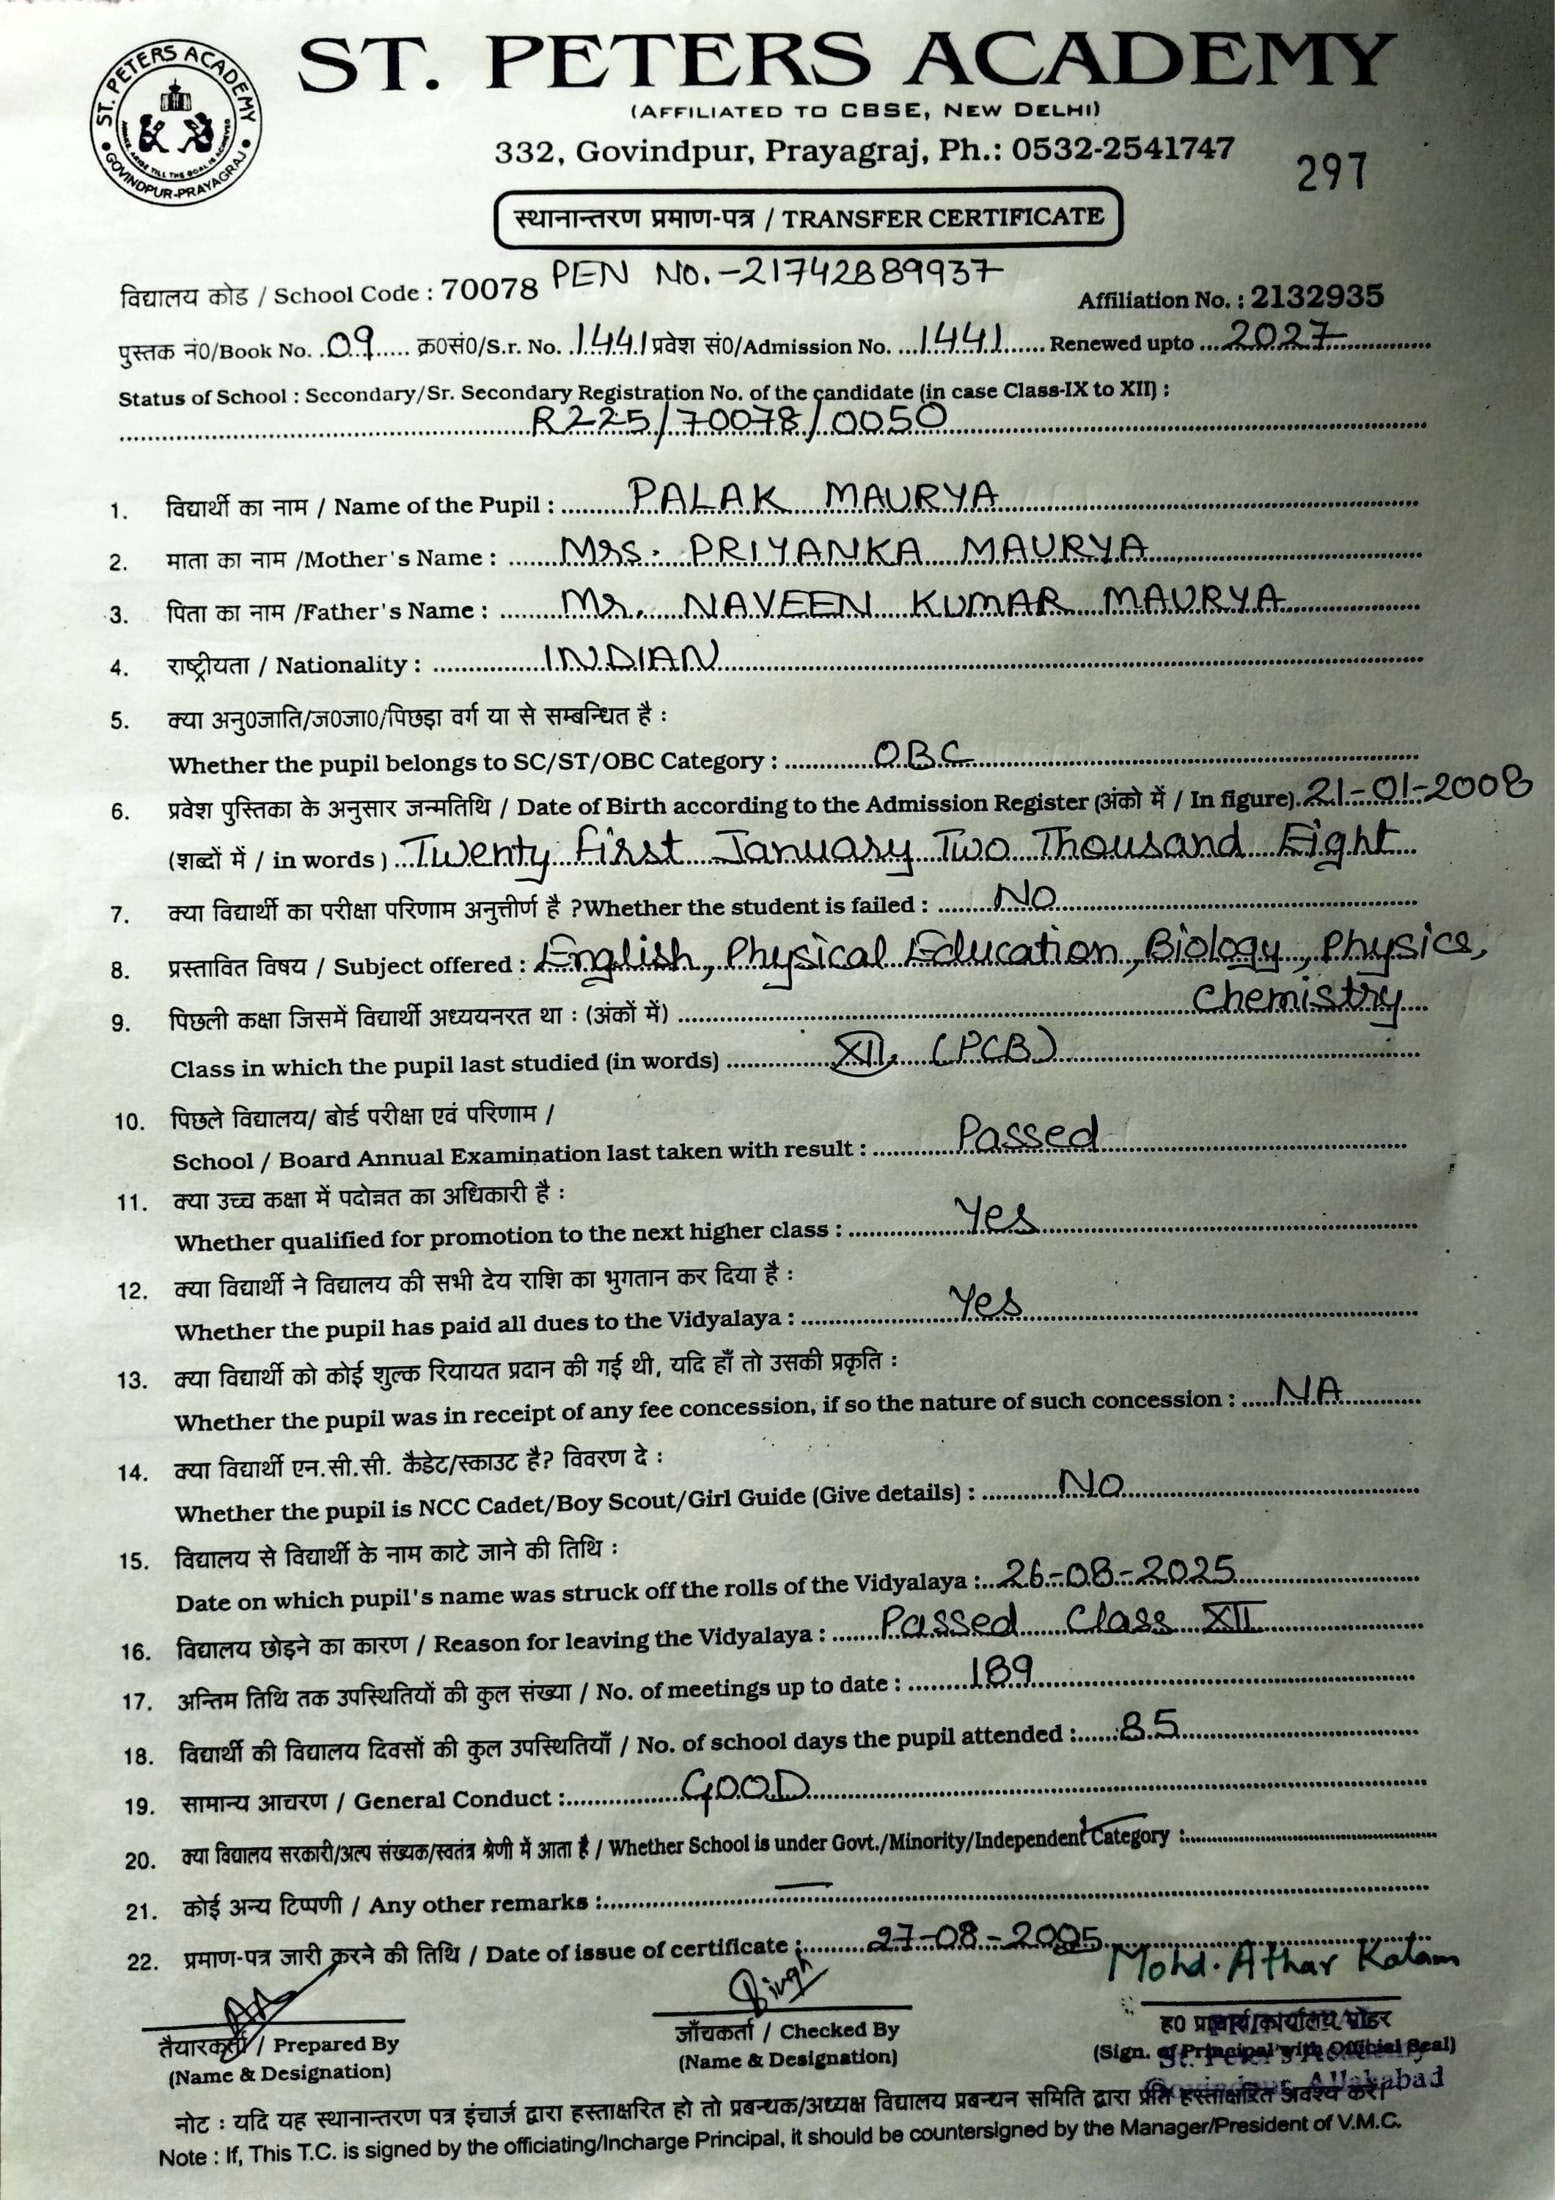 ST. PETERS ACADEMY
ST. PETERS ACADEMY
GOVINDPUR-PRAYAGRAJ
(AFFILIATED TO CBSE, NEW DELHI)
332, Govindpur, Prayagraj, Ph.: 0532-2541747
297
स्थानान्तरण प्रमाण-पत्र / TRANSFER CERTIFICATE
PEN NO.-21742889937
विद्यालय कोड / School Code : 70078 Affiliation No. : 2132935
पुस्तक नं0/Book No. .09..... क्र0सं0/S.r. No. .1441 प्रवेश सं0/Admission No. ...1441...... Renewed upto ...2027............
Status of School : Secondary/Sr. Secondary Registration No. of the candidate (in case Class-IX to XII) :
R225/70078/0050
1. विद्यार्थी का नाम / Name of the Pupil : PALAK MAURYA
2. माता का नाम /Mother's Name : Mrs. PRIYANKA MAURYA
3. पिता का नाम /Father's Name : Mr. NAVEEN KUMAR MAURYA
4. राष्ट्रीयता / Nationality : INDIAN
5. क्या अनु0जाति/ज0जा0/पिछड़ा वर्ग या से सम्बन्धित है :
Whether the pupil belongs to SC/ST/OBC Category : OBC
6. प्रवेश पुस्तिका के अनुसार जन्मतिथि / Date of Birth according to the Admission Register (अंको में / In figure). 21-01-2008
(शब्दों में / in words ) Twenty first January Two Thousand Eight
7. क्या विद्यार्थी का परीक्षा परिणाम अनुत्तीर्ण है ?Whether the student is failed : NO
8. प्रस्तावित विषय / Subject offered : English, Physical Education, Biology, Physics,
Chemistry
9. पिछली कक्षा जिसमें विद्यार्थी अध्ययनरत था : (अंकों में)
Class in which the pupil last studied (in words) XII (PCB)
10. पिछले विद्यालय/ बोर्ड परीक्षा एवं परिणाम /
School / Board Annual Examination last taken with result : Passed
11. क्या उच्च कक्षा में पदोन्नत का अधिकारी है :
Whether qualified for promotion to the next higher class : Yes
12. क्या विद्यार्थी ने विद्यालय की सभी देय राशि का भुगतान कर दिया है :
Whether the pupil has paid all dues to the Vidyalaya : Yes
13. क्या विद्यार्थी को कोई शुल्क रियायत प्रदान की गई थी, यदि हाँ तो उसकी प्रकृति :
Whether the pupil was in receipt of any fee concession, if so the nature of such concession : NA
14. क्या विद्यार्थी एन.सी.सी. कैडेट/स्काउट है? विवरण दे :
Whether the pupil is NCC Cadet/Boy Scout/Girl Guide (Give details) : NO
15. विद्यालय से विद्यार्थी के नाम काटे जाने की तिथि :
Date on which pupil's name was struck off the rolls of the Vidyalaya : 26-08-2025
16. विद्यालय छोड़ने का कारण / Reason for leaving the Vidyalaya : Passed Class XII
17. अन्तिम तिथि तक उपस्थितियों की कुल संख्या / No. of meetings up to date : 189
18. विद्यार्थी की विद्यालय दिवसों की कुल उपस्थितियाँ / No. of school days the pupil attended : 85
19. सामान्य आचरण / General Conduct : GOOD
20. क्या विद्यालय सरकारी/अल्प संख्यक/स्वतंत्र श्रेणी में आता है / Whether School is under Govt./Minority/Independent Category :
21. कोई अन्य टिप्पणी / Any other remarks : —
22. प्रमाण-पत्र जारी करने की तिथि / Date of issue of certificate : 27-08-2005
Singh Mohd. Athar Kalam
तैयारकर्ता / Prepared By जाँचकर्ता / Checked By ह0 प्राचार्य/कार्यालय मोहर
(Name & Designation) (Name & Designation) (Sign. of Principal with Official Seal)
St. Peter's Academy
Govindpur, Allahabad
नोट : यदि यह स्थानान्तरण पत्र इंचार्ज द्वारा हस्ताक्षरित हो तो प्रबन्धक/अध्यक्ष विद्यालय प्रबन्धन समिति द्वारा प्रति हस्ताक्षरित अवश्य करें।
Note : If, This T.C. is signed by the officiating/Incharge Principal, it should be countersigned by the Manager/President of V.M.C.